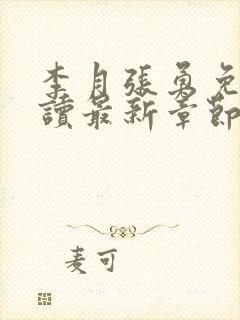 李月張勇免
讀最新章節
麦可